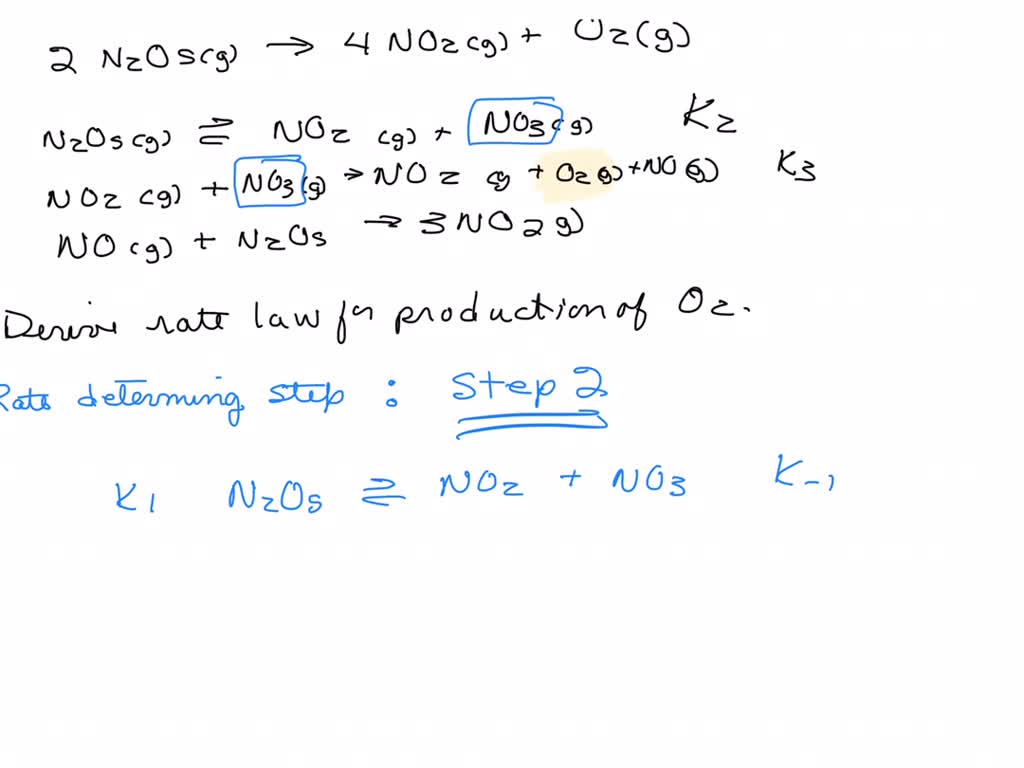 2 N2O5(g) → 4 NO2(g) + O2(g)
N2O5(g) ⇌ NO2 (g) + NO3(g) K2
NO2 (g) + NO3(g) → NO2 g + O2(g) + NO(g) K3
NO(g) + N2O5 → 3NO2g)
Derive rate law for production of O2.
Rate determining step : Step 2
K1 N2O5 ⇌ NO2 + NO3 K-1